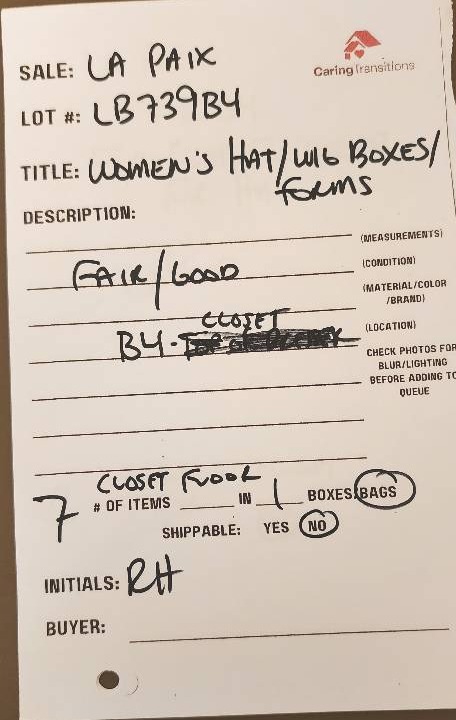 SALE: LA PAIX
CaringTransitions
LOT #: LB739B4
TITLE: WOMEN'S HAT/WIG BOXES/
FORMS
DESCRIPTION:
(MEASUREMENTS)
FAIR/GOOD (CONDITION)
(MATERIAL/COLOR
/BRAND)
CLOSET (LOCATION)
B4-
CHECK PHOTOS FOR
BLUR/LIGHTING
BEFORE ADDING TO
QUEUE
CLOSET FLOOR
7 # OF ITEMS IN 1 BOXES/BAGS
SHIPPABLE: YES NO
INITIALS: RH
BUYER: